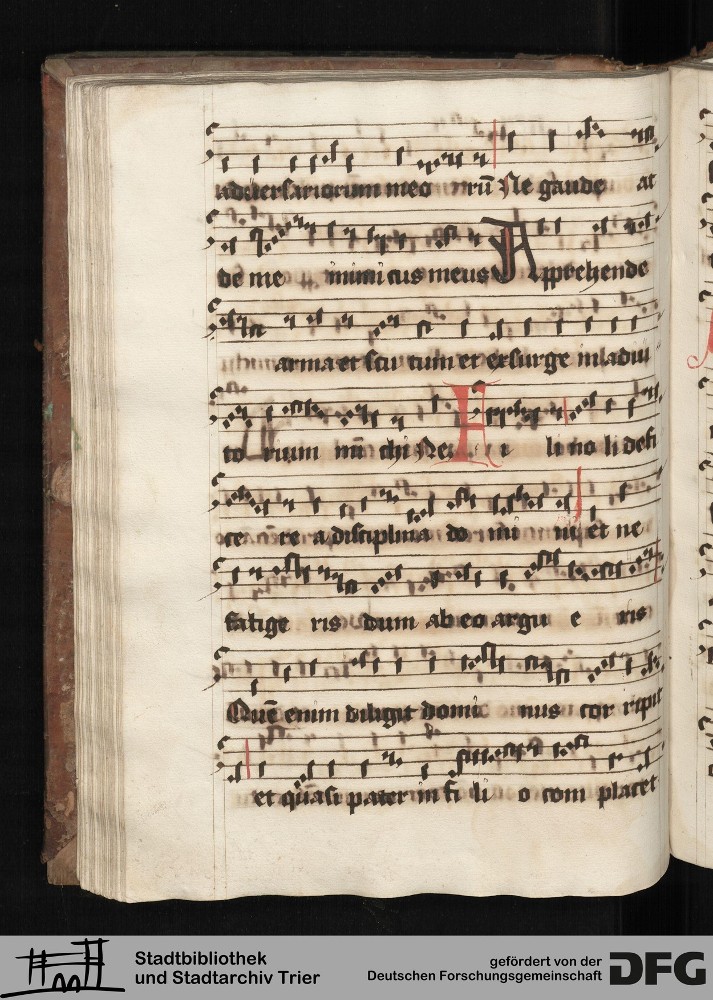 adversariorum meo rū Ne gaude at
de me inimicus meus Apprehende
arma et scu tum et exsurge in adiu
to rium mi chi Ne Fi li no li defi
ce re a disciplina do mi ni et ne
fatige ris dum ab eo argu e ris
Quē enim diligit domi nus cor ripit
et quasi pater in fi li o com placet
Stadtbibliothek
und Stadtarchiv Trier
gefördert von der
Deutschen Forschungsgemeinschaft
DFG